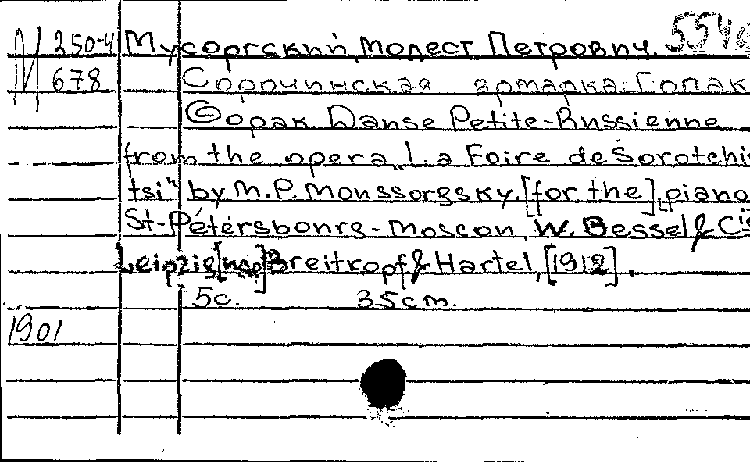 М 250-4 Мусоргский, Модест Петрович. 554
678 Сорочинская ярмарка. Гопак
Gopak Danse Petite-Russienne
from the opera „La Foire de Sorotchi
tsi" by M. P. Moussorgsky. [for the] piano
St-Pétersbourg-Moscou, W. Bessel & Cie
Leipzig, Breitkopf & Hartel, [1912].
5c. 35cm.
1901